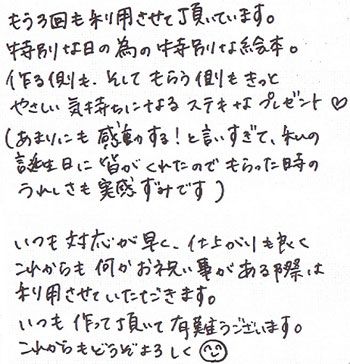 もう3回も利用させて頂いています。
特別な日の為の特別な絵本。
作る側も、そしてもらう側もきっと
やさしい気持ちになるステキなプレゼント♡
(あまりにも感動する!と言いすぎて、私の
誕生日に皆がくれたのでもらった時の
うれしさも実感ずみです)
いつも対応が早く、仕上がりも良く
これからも何かお祝い事がある際は
利用させていただきます。
いつも作って頂いて有難うございます。
これからもどうぞよろしく☺